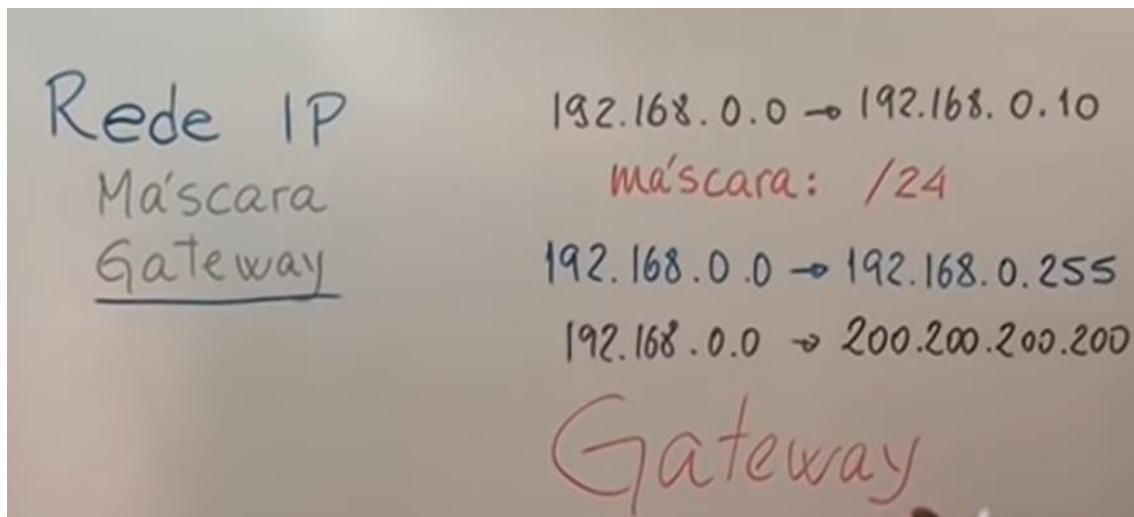 Rede IP
Máscara
Gateway
192.168.0.0 → 192.168.0.10
máscara: /24
192.168.0.0 → 192.168.0.255
192.168.0.0 → 200.200.200.200
Gateway